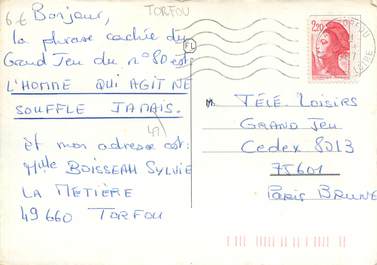 6€ Bonjour,
TORFOU
la phrase cachée du
Grand Jeu du n°80 est
L'HOMME QUI AGIT NE
SOUFFLE JAMAIS.
Et mon adresse est:
Mlle BOISSEAU SYLVIE
LA METIÈRE
49660 TORFOU
2,20
TÉLÉ-LOISIRS
GRAND JEU
Cedex 8013
75601
Paris BRUNE